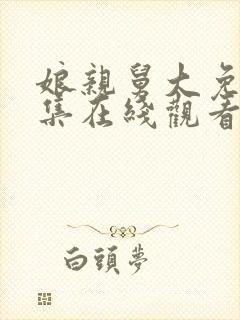 娘親舅大免
集在綫觀看
白頭夢